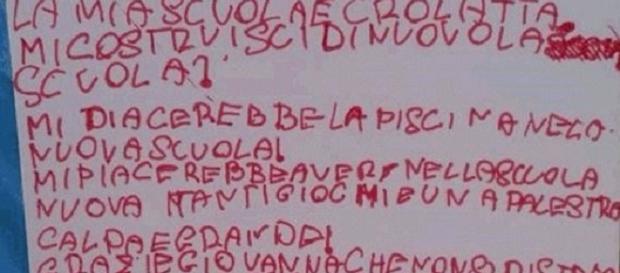 LA MIA SCUOLA E CROLATTA
MI COSTRUISCI DI NUOVO LA
SCUOLA?
MI DIACEREBBE LA PISCINA NELLA
NUOVA SCUOLA!
MI PIACEREBBE AVER NELLA SCUOLA
NUOVA TANTI GIOCHI E UNA PALESTRA
CALDA E GRANDE!
GRAZIE GIOVANNA CHE NON